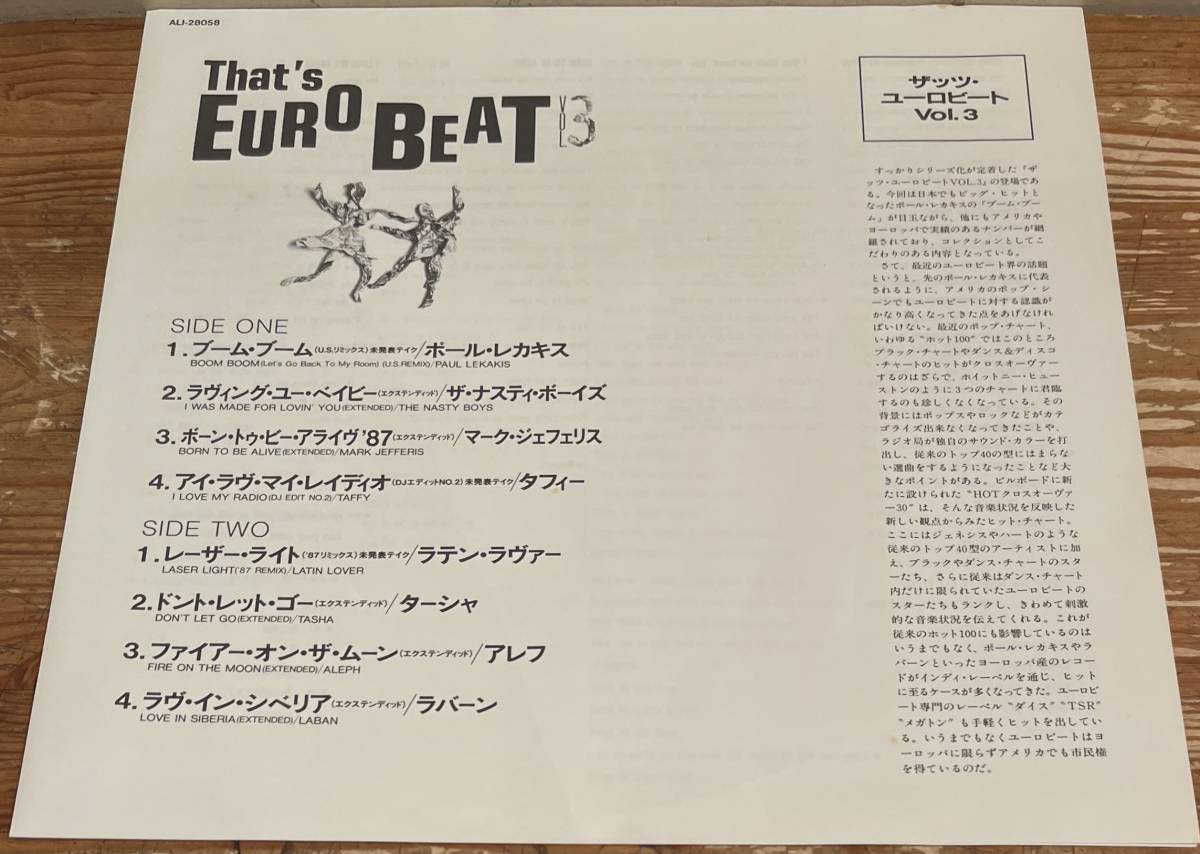 ALI-28058
That's
EURO BEAT VOL 3
SIDE ONE
1.ブーム・ブーム(U.S.リミックス)未発表テイク/ポール・レカキス
BOOM BOOM(Let's Go Back To My Room) (U.S.REMIX)/PAUL LEKAKIS
2.ラヴィング・ユー・ベイビー(エクステンディッド)/ザ・ナスティ・ボーイズ
I WAS MADE FOR LOVIN' YOU(EXTENDED)/THE NASTY BOYS
3.ボーン・トゥ・ビー・アライヴ'87(エクステンディッド)/マーク・ジェフェリス
BORN TO BE ALIVE(EXTENDED)/MARK JEFFERIS
4.アイ・ラヴ・マイ・レイディオ(DJエディットNO.2)未発表テイク/タフィー
I LOVE MY RADIO(DJ EDIT NO.2)/TAFFY
SIDE TWO
1.レーザー・ライト('87リミックス)未発表テイク/ラテン・ラヴァー
LASER LIGHT('87 REMIX)/LATIN LOVER
2.ドント・レット・ゴー(エクステンディッド)/ターシャ
DON'T LET GO(EXTENDED)/TASHA
3.ファイアー・オン・ザ・ムーン(エクステンディッド)/アレフ
FIRE ON THE MOON(EXTENDED)/ALEPH
4.ラヴ・イン・シベリア(エクステンディッド)/ラバーン
LOVE IN SIBERIA(EXTENDED)/LABAN
ザッツ・
ユーロビート
Vol.3
すっかりシリーズ化が定着した『ザ
ッツ・ユーロビートVOL.3』の登場であ
る。今回は日本でもビッグ・ヒットと
なったポール・レカキスの「ブーム・ブー
ム」が目玉ながら、他にもアメリカや
ヨーロッパで実績のあるナンバーが網
羅されており、コレクションとしてこ
だわりのある内容となっている。
さて、最近のユーロビート界の話題
というと、先のポール・レカキスに代表
されるように、アメリカのポップ・シ
ーンでもユーロビートに対する認識が
かなり高くなってきた点をあげなけれ
ばいけない。最近のポップ・チャート、
いわゆる“ホット100”ではこのところ
ブラック・チャートやダンス&ディスコ
・チャートのヒットがクロスオーヴァー
するのはざらで、ホイットニー・ヒュー
ストンのように3つのチャートに君臨
するのも珍しくなくなっている。その
背景にはポップスやロックなどがカテ
ゴライズ出来なくなってきたことや、
ラジオ局が独自のサウンド・カラーを打
出し、従来のトップ40の型にはまらな
い選曲をするようになったことなど大
きなポイントがある。ビルボードに新
たに設けられた“HOTクロスオーヴァ
ー30”は、そんな音楽状況を反映した
新しい観点からみたヒット・チャート。
ここにはジェネシスやハートのような
従来のトップ40型のアーティストに加
え、ブラックやダンス・チャートのスタ
ーたち、さらに従来はダンス・チャート
内だけに限られていたユーロビートの
スターたちもランクし、きわめて刺激
的な音楽状況を伝えてくれる。これが
従来のホット100にも影響しているのは
いうまでもなく、ポール・レカキスやラ
バーンといったヨーロッパ産のレコー
ドがインディ・レーベルを通じ、ヒット
に至るケースが多くなってきた。ユーロビ
ート専門のレーベル“ダイス”“TSR”
“メガトン”も手軽くヒットを出してい
る。いうまでもなくユーロビートはヨ
ーロッパに限らずアメリカでも市民権
を得ているのだ。